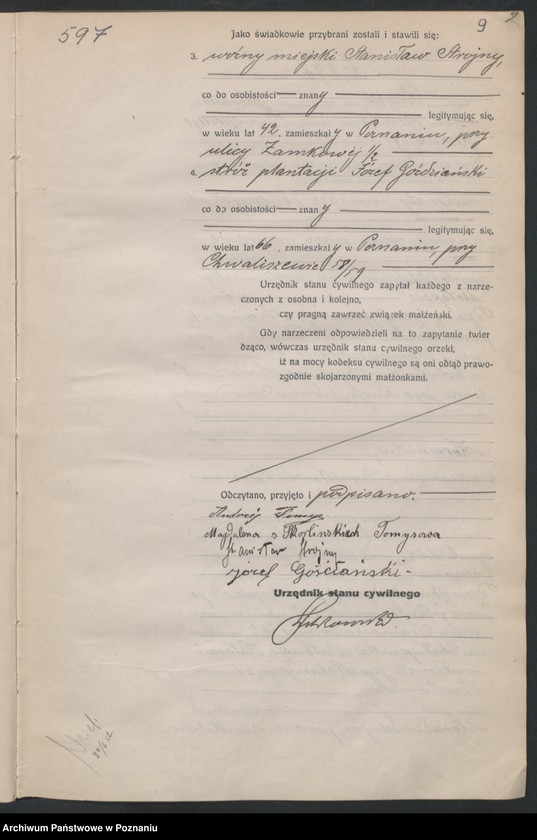 597
9
2
Jako świadkowie przybrani zostali i stawili się:
3. woźny miejski Stanisław Strojny,
co do osobistości — znany
legitymując się,
w wieku lat 42, zamieszkały w Poznaniu, przy
ulicy Zamkowej 1/2
4. stróż plantacji Józef Goździański
co do osobistości — znany
legitymując się,
w wieku lat 66, zamieszkały w Poznaniu, przy
Chwaliszewie 58/59
Urzędnik stanu cywilnego zapytał każdego z narze-
czonych z osobna i kolejno,
czy pragną zawrzeć związek małżeński.
Gdy narzeczeni odpowiedzieli na to zapytanie twier
dząco, wówczas urzędnik stanu cywilnego orzekł,
iż na mocy kodeksu cywilnego są oni odtąd prawo-
zgodnie skojarzonymi małżonkami.
Odczytano, przyjęto i podpisano.
Andrzej Tomys
Magdalena s Skorlinskich Tomysowa
Stanisław Strojny
józef Gośclański
Urzędnik stanu cywilnego
Archiwum Państwowe w Poznaniu